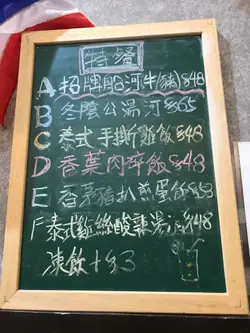 特餐
A 招牌船河(牛/豬) $48
B 冬蔭公湯河 $65
C 泰式手撕雞飯 $48
D 香葉肉碎飯 $48
E 香茅豬扒煎蛋飯 $58
F 泰式雞絲酸辣湯河 $48
凍飲+$3